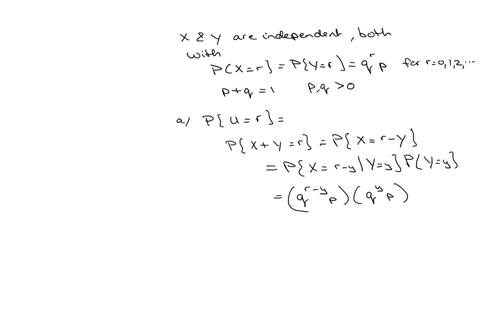 X & Y are independent, both
with
P(X=r) = P{Y=r} = q^r p for r=0,1,2,...
p+q=1 p,q >0
a/ P{U=r} =
P{X+Y=r} = P{X=r-Y}
= P{X=r-y|Y=y}P{Y=y}
= (q^{r-y} p)(q^y p)